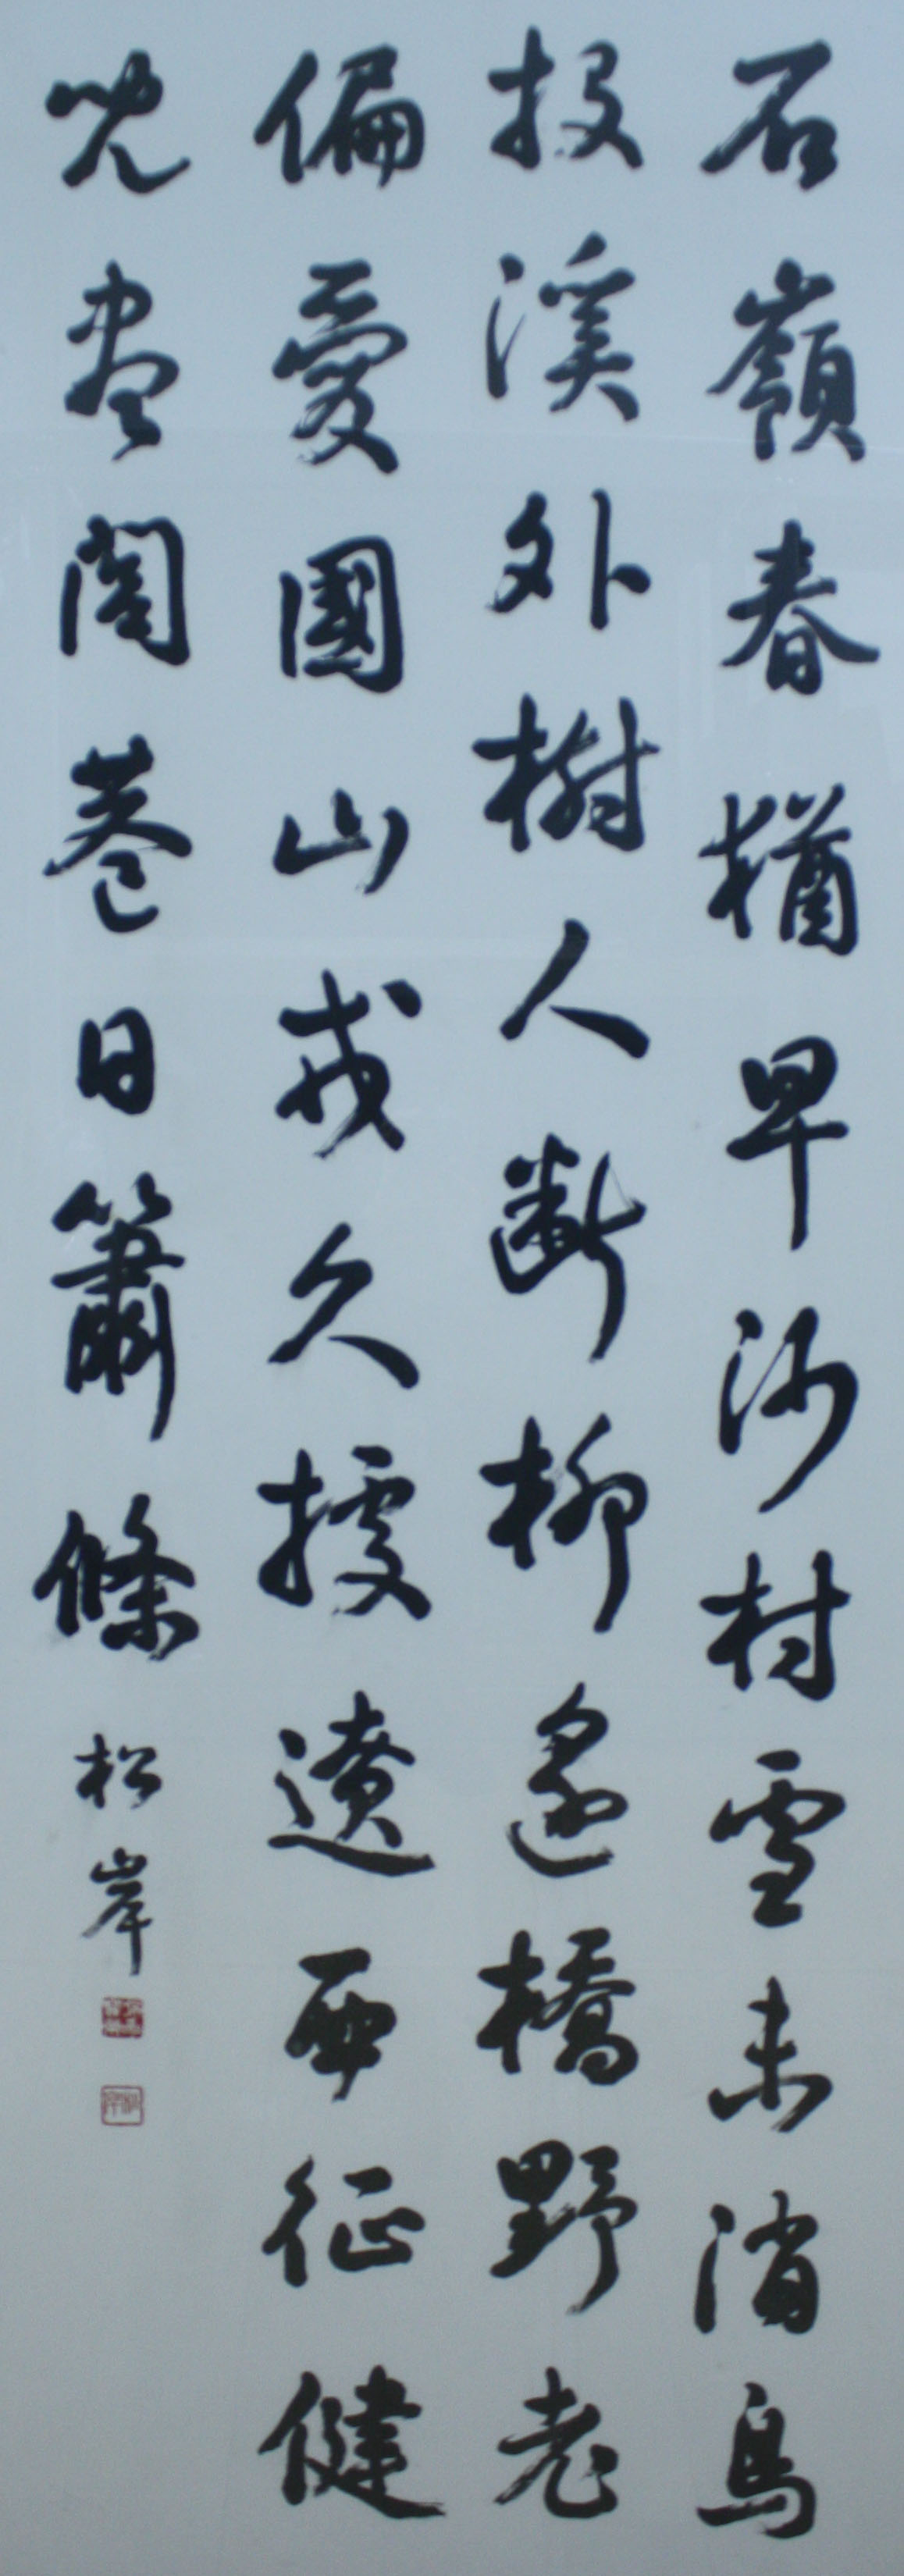 石嶺春猶早沙村雪未消鳥
投溪外樹人斷柳邊橋野老
偏愛國山戎久據遼西征健
兒盡閭巷日簫條 松岸